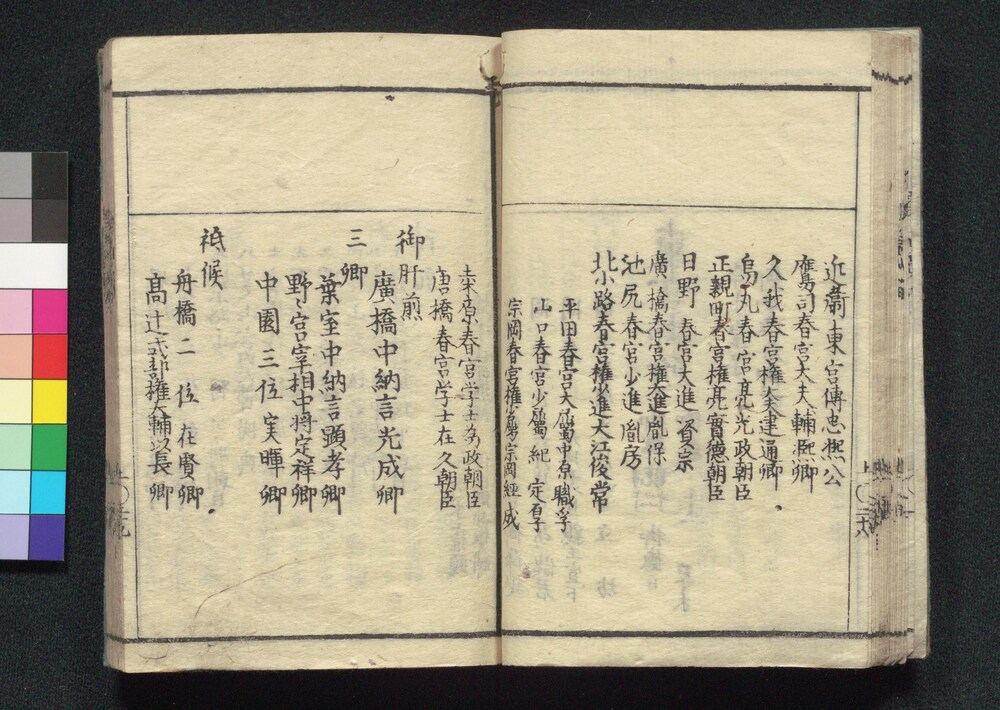 近衞東宮傳忠凞公
鷹司春宮大夫輔凞卿
久我春宮權大夫建通卿
烏丸春宮亮光政朝臣
正親町春宮權亮實德朝臣
日野春宮大進資宗
廣橋春宮權大進胤保
池尻春宮少進胤房
北小路春宮權少進大江俊常
平田春宮大屬中原職孚
山口春宮少屬紀定孝
宗岡春宮權少屬宗岡經成
桒原春宮学士為政朝臣
唐橋春宮学士在久朝臣
御肝煎
廣橋中納言光成卿
三卿
葉室中納言顕孝卿
野宮宰相中将定祥卿
中園三位実暉卿
祗候
舟橋二位在賢卿
髙辻式部權大輔以長卿